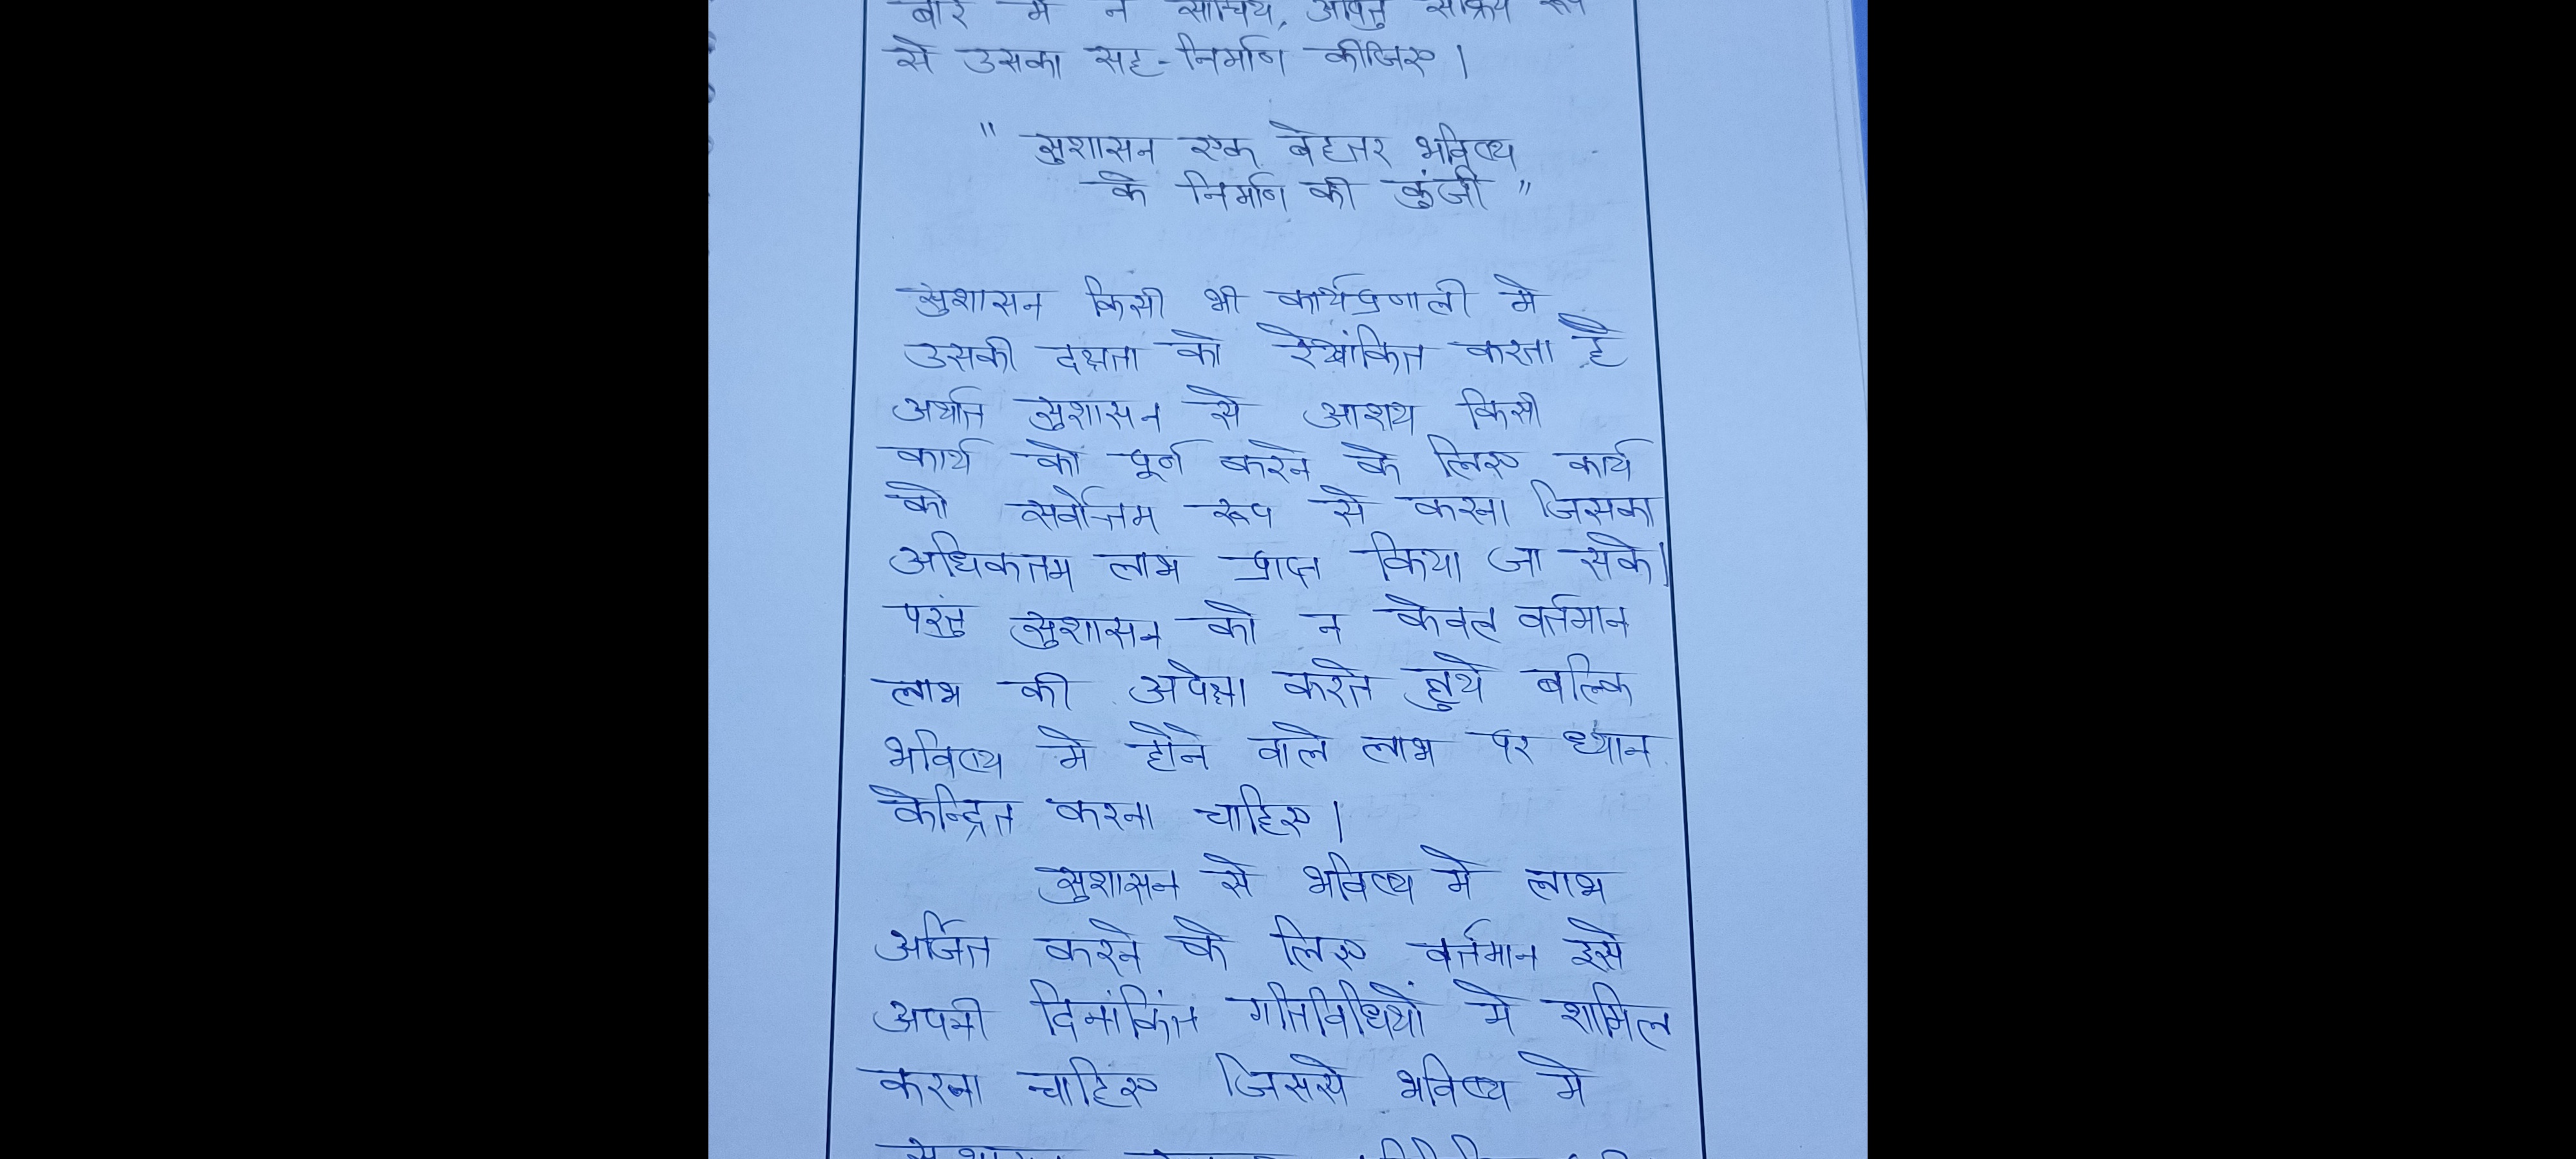 बारे में न सोचिये, अपितु सक्रिय रूप
से उसका सह-निर्माण कीजिए।
" सुशासन एक बेहतर भविष्य
के निर्माण की कुंजी "
सुशासन किसी भी कार्यप्रणाली मे
उसकी दक्षता को रेखांकित करता है
अर्थात सुशासन से आशय किसी
कार्य को पूर्ण करने के लिए कार्य
को सर्वोत्तम रूप से करना जिसका
अधिकतम लाभ प्राप्त किया जा सके।
परंतु सुशासन को न केवल वर्तमान
लाभ की अपेक्षा करते हुये बल्कि
भविष्य मे होने वाले लाभ पर ध्यान
केन्द्रित करना चाहिए।
सुशासन से भविष्य मे लाभ
अर्जित करने के लिए वर्तमान इसे
अपनी दिनांकित गतिविधियों मे शामिल
करना चाहिए जिससे भविष्य मे